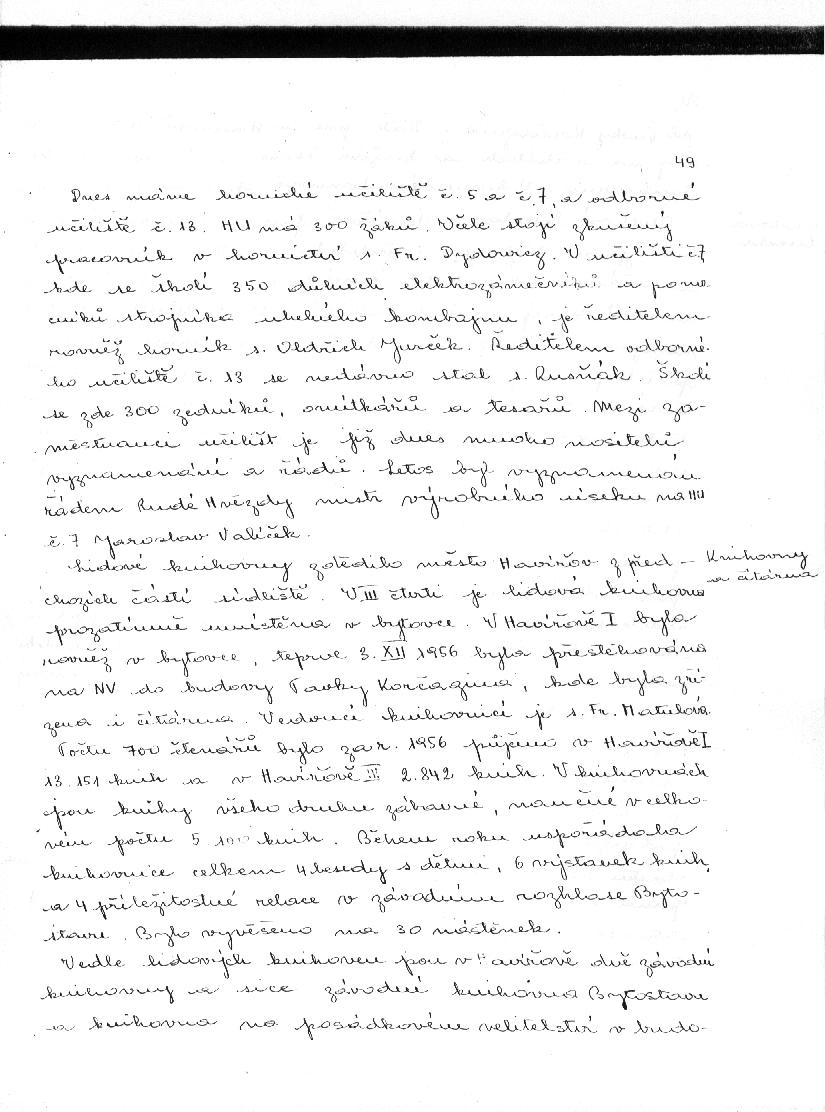 49
Dnes máme hornické učiliště č. 5 a č. 7, a odborné
učiliště č. 13. HU má 300 žáků. Včele stojí zkušený
pracovník v hornictví s. Fr. Dydowicz. V učilišti č 7
kde se školí 350 důlních elektrozámečníků a pomo
cníků strojníka uhelného kombajnu, je ředitelem
rovněž horník s. Oldřich Jurček. Ředitelem odborné-
ho učiliště č. 13 se nedávno stal s. Rusňák. Školí
se zde 300 zedníků, omítkářů a tesařů. Mezi za-
městnanci učilišť je již dnes mnoho nositelů
vyznamenání a řádů. Letos byl vyznamenán
řádem Rudé Hvězdy mistr výrobního úseku na HU
č. 7 Jaroslav Valíček.
Lidové knihovny zdědilo město Havířov z před –
Knihovny
a čítárna
chozích částí sídliště. V III čtvrti je lidová knihovna
prozatímně umístěna v bytovce. V Havířově I byla
rovněž v bytovce, teprve 3. XII 1956 byla přestěhována
na NV do budovy Pavky Korčagina, kde byla zří-
zena i čítárna. Vedoucí knihovnicí je s. Fr. Matulová.
Počtu 700 čtenářů bylo za r. 1956 půjčeno v Havířově I
13.151 knih a v Havířově III 2.842 knih. V knihovnách
jsou knihy všeho druhu zábavné, naučné v celko-
vém počtu 5 100 knih. Během roku uspořádala
knihovnice celkem 4 besedy s dětmi, 6 výstavek knih,
a 4 příležitostné relace v závodním rozhlase Byto-
stavu. Bylo vyvěšeno na 30 nástěnek.
Vedle lidových knihoven jsou v Havířově dvě závodní
knihovny a sice závodní knihovna Bytostavu
a knihovna na posádkovém velitelství v budo-